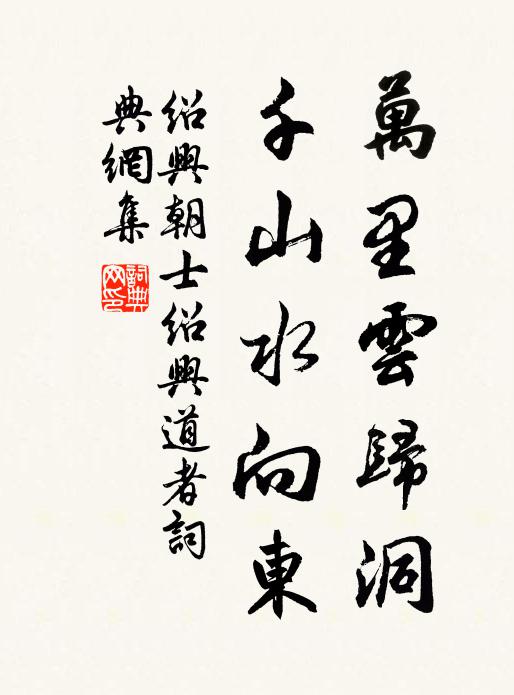 萬里雲歸洞
千山水向東
紹興朝士紹興道者詞
典網集
詞典网印